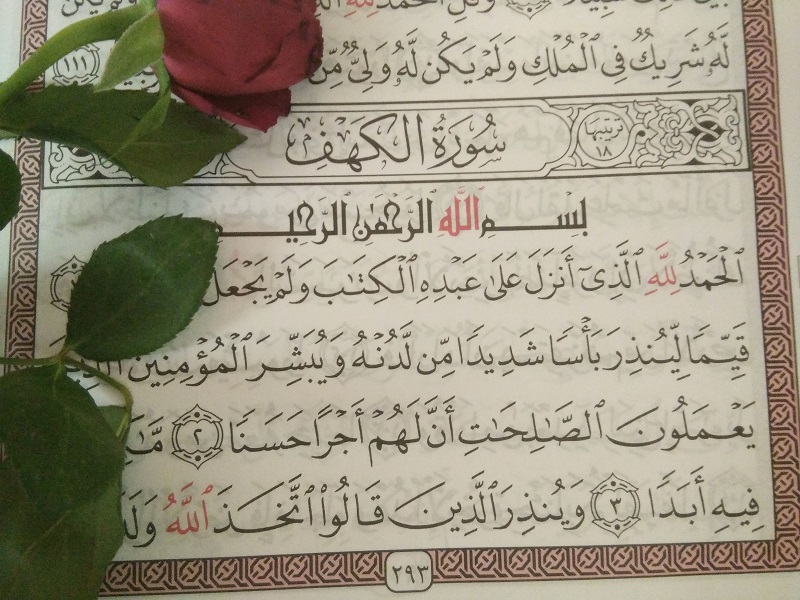 لَّهُۥ شَرِيكٌ فِي ٱلْمُلْكِ وَلَمْ يَكُن لَّهُۥ وَلِيٌّ مِّنَ ١١١
سُورَةُ الكَهْفِ ترتيبها ١٨
بِسْمِ ٱللَّهِ ٱلرَّحْمَٰنِ ٱلرَّحِيمِ
ٱلْحَمْدُ لِلَّهِ ٱلَّذِيٓ أَنزَلَ عَلَىٰ عَبْدِهِ ٱلْكِتَٰبَ وَلَمْ يَجْعَل
قَيِّمًا لِّيُنذِرَ بَأْسًا شَدِيدًا مِّن لَّدُنْهُ وَيُبَشِّرَ ٱلْمُؤْمِنِينَ
يَعْمَلُونَ ٱلصَّٰلِحَٰتِ أَنَّ لَهُمْ أَجْرًا حَسَنًا ٢
فِيهِ أَبَدًا ٣ وَيُنذِرَ ٱلَّذِينَ قَالُوا۟ ٱتَّخَذَ ٱللَّهُ
٢٩٣